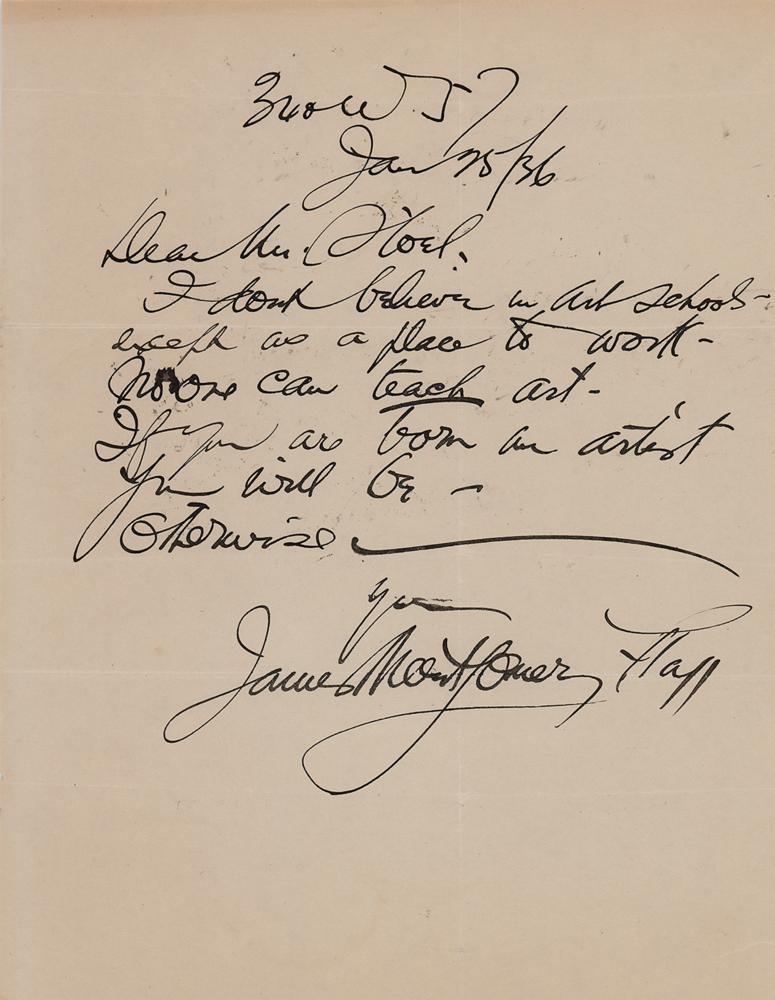 340 W. 57
Jan 25/36
Dear Mr.
I dont believe in art schools-
except as a place to work-
No one can teach art-
If you are born an artist
you will be -
otherwise
Yrs
James Montgomery Flagg